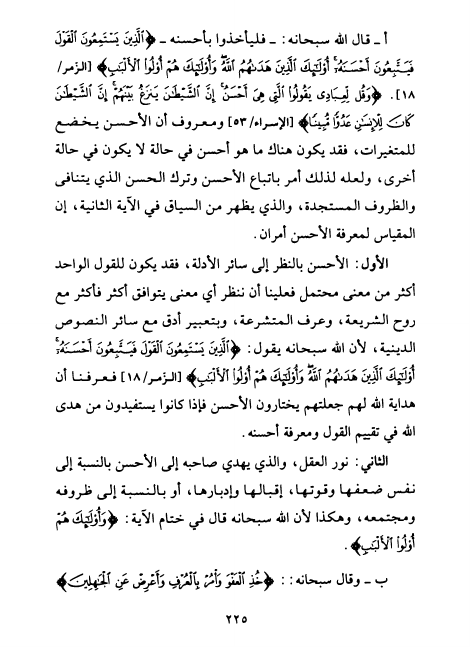 أ ـ قال الله سبحانه: ـ فليأخذوا بأحسنه ـ ﴿الَّذِينَ يَسْتَمِعُونَ الْقَوْلَ
فَيَتَّبِعُونَ أَحْسَنَهُ أُوْلَئِكَ الَّذِينَ هَدَاهُمُ اللَّهُ وَأُوْلَئِكَ هُمْ أُوْلُوا الْأَلْبَابِ﴾ [الزمر/
١٨]. ﴿وَقُل لِّعِبَادِي يَقُولُوا الَّتِي هِيَ أَحْسَنُ إِنَّ الشَّيْطَانَ يَنزَغُ بَيْنَهُمْ إِنَّ الشَّيْطَانَ
كَانَ لِلْإِنسَانِ عَدُوًّا مُّبِينًا﴾ [الإسراء/٥٣] ومعروف أن الأحسن يخضع
للمتغيرات، فقد يكون هناك ما هو أحسن في حالة لا يكون في حالة
أخرى، ولعله لذلك أمر باتباع الأحسن وترك الحسن الذي يتنافى
والظروف المستجدة، والذي يظهر من السياق في الآية الثانية، إن
المقياس لمعرفة الأحسن أمران.
الأول: الأحسن بالنظر إلى سائر الأدلة، فقد يكون للقول الواحد
أكثر من معنى محتمل فعلينا أن ننظر أي معنى يتوافق أكثر فأكثر مع
روح الشريعة، وعرف المتشرعة، وبتعبير أدق مع سائر النصوص
الدينية، لأن الله سبحانه يقول: ﴿الَّذِينَ يَسْتَمِعُونَ الْقَوْلَ فَيَتَّبِعُونَ أَحْسَنَهُ
أُوْلَئِكَ الَّذِينَ هَدَاهُمُ اللَّهُ وَأُوْلَئِكَ هُمْ أُوْلُوا الْأَلْبَابِ﴾ [الزمر/١٨] فعرفنا أن
هداية الله لهم جعلتهم يختارون الأحسن فإذا كانوا يستفيدون من هدى
الله في تقييم القول ومعرفة أحسنه.
الثاني: نور العقل، والذي يهدي صاحبه إلى الأحسن بالنسبة إلى
نفس ضعفها وقوتها، إقبالها وإدبارها، أو بالنسبة إلى ظروفه
ومجتمعه، وهكذا لأن الله سبحانه قال في ختام الآية: ﴿وَأُوْلَئِكَ هُمْ
أُوْلُوا الْأَلْبَابِ﴾.
ب ـ وقال سبحانه:: ﴿خُذِ الْعَفْوَ وَأْمُرْ بِالْعُرْفِ وَأَعْرِضْ عَنِ الْجَاهِلِينَ﴾
٢٢٥